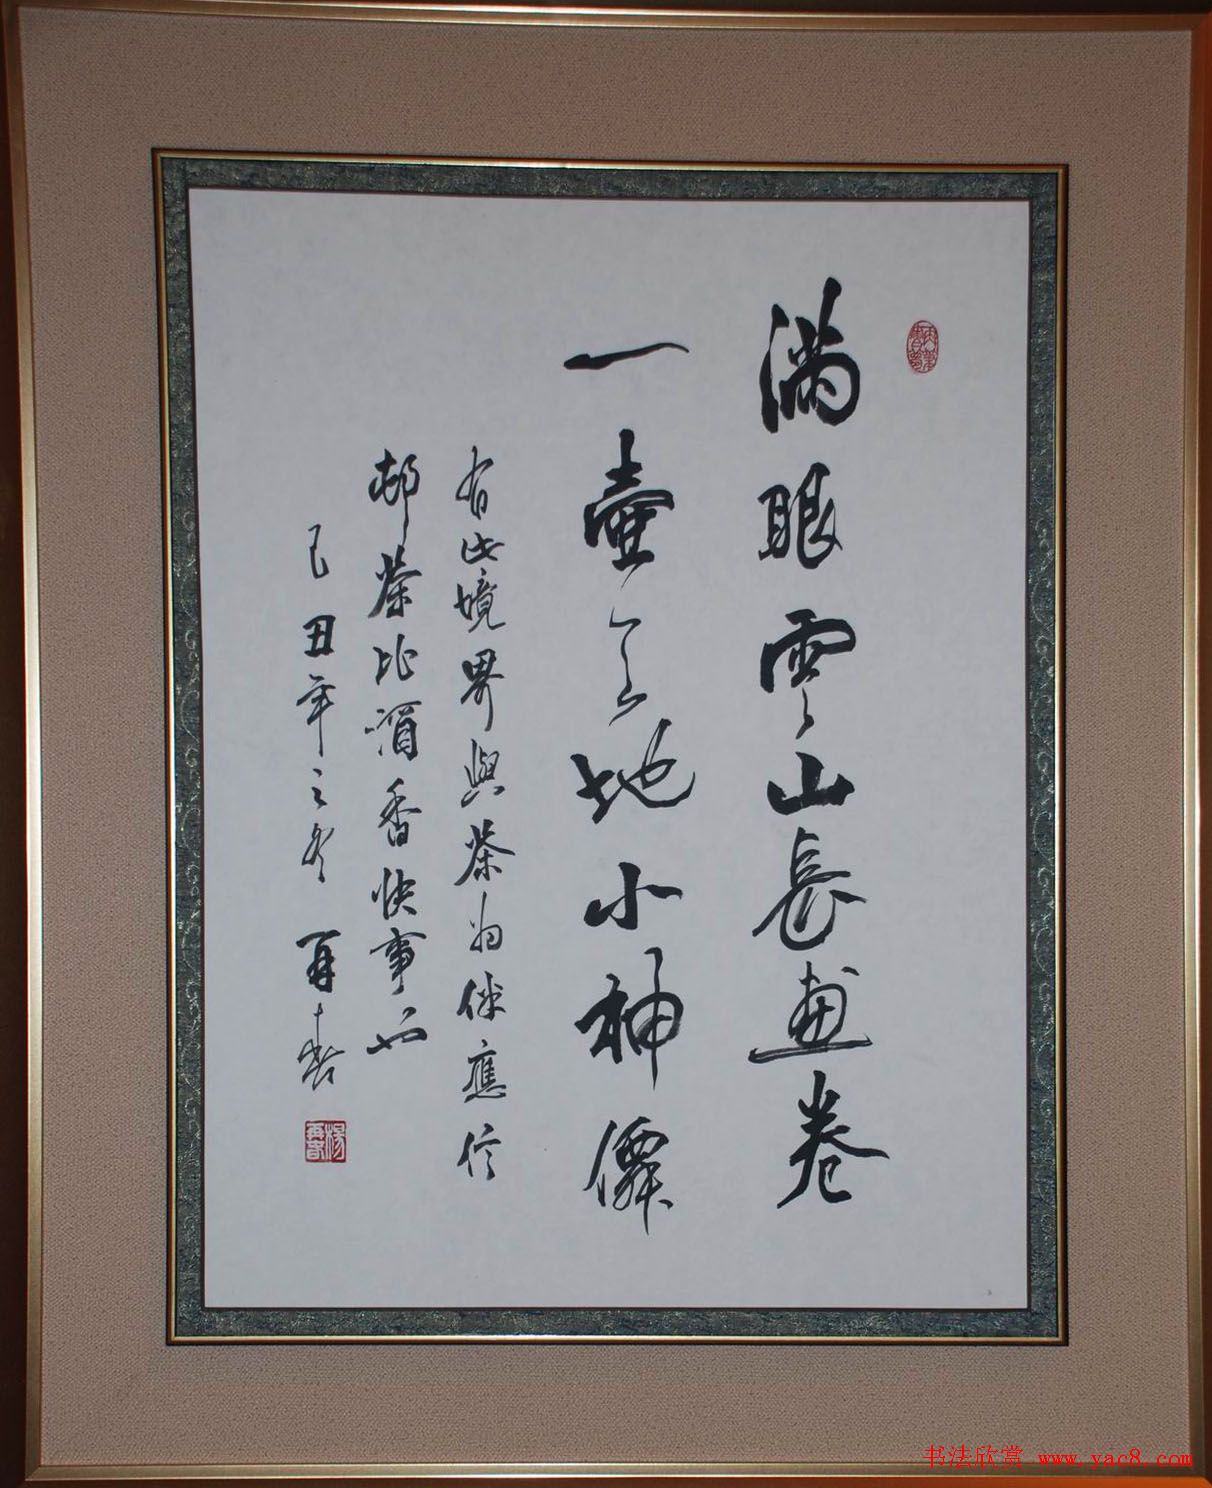 满眼雲山長画卷
一壺天地小神僊
有此境界與茶为伴應信
邨茶比酒香快事也
己丑年之冬再春
书法欣赏 www.yac8.com